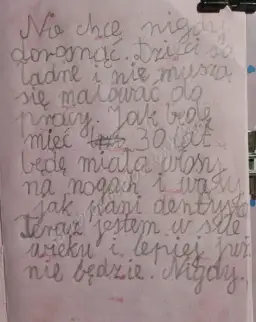 Nie chcę nigdy
dorosnąć. Dzieci są
ładne i nie muszą
się malować do
pracy. Jak będę
mieć 30 lat
będę miała włosy
na nogach i wąsy
jak pani dentystka
Teraz jestem w sile
wieku i lepiej już
nie będzie. Nigdy.